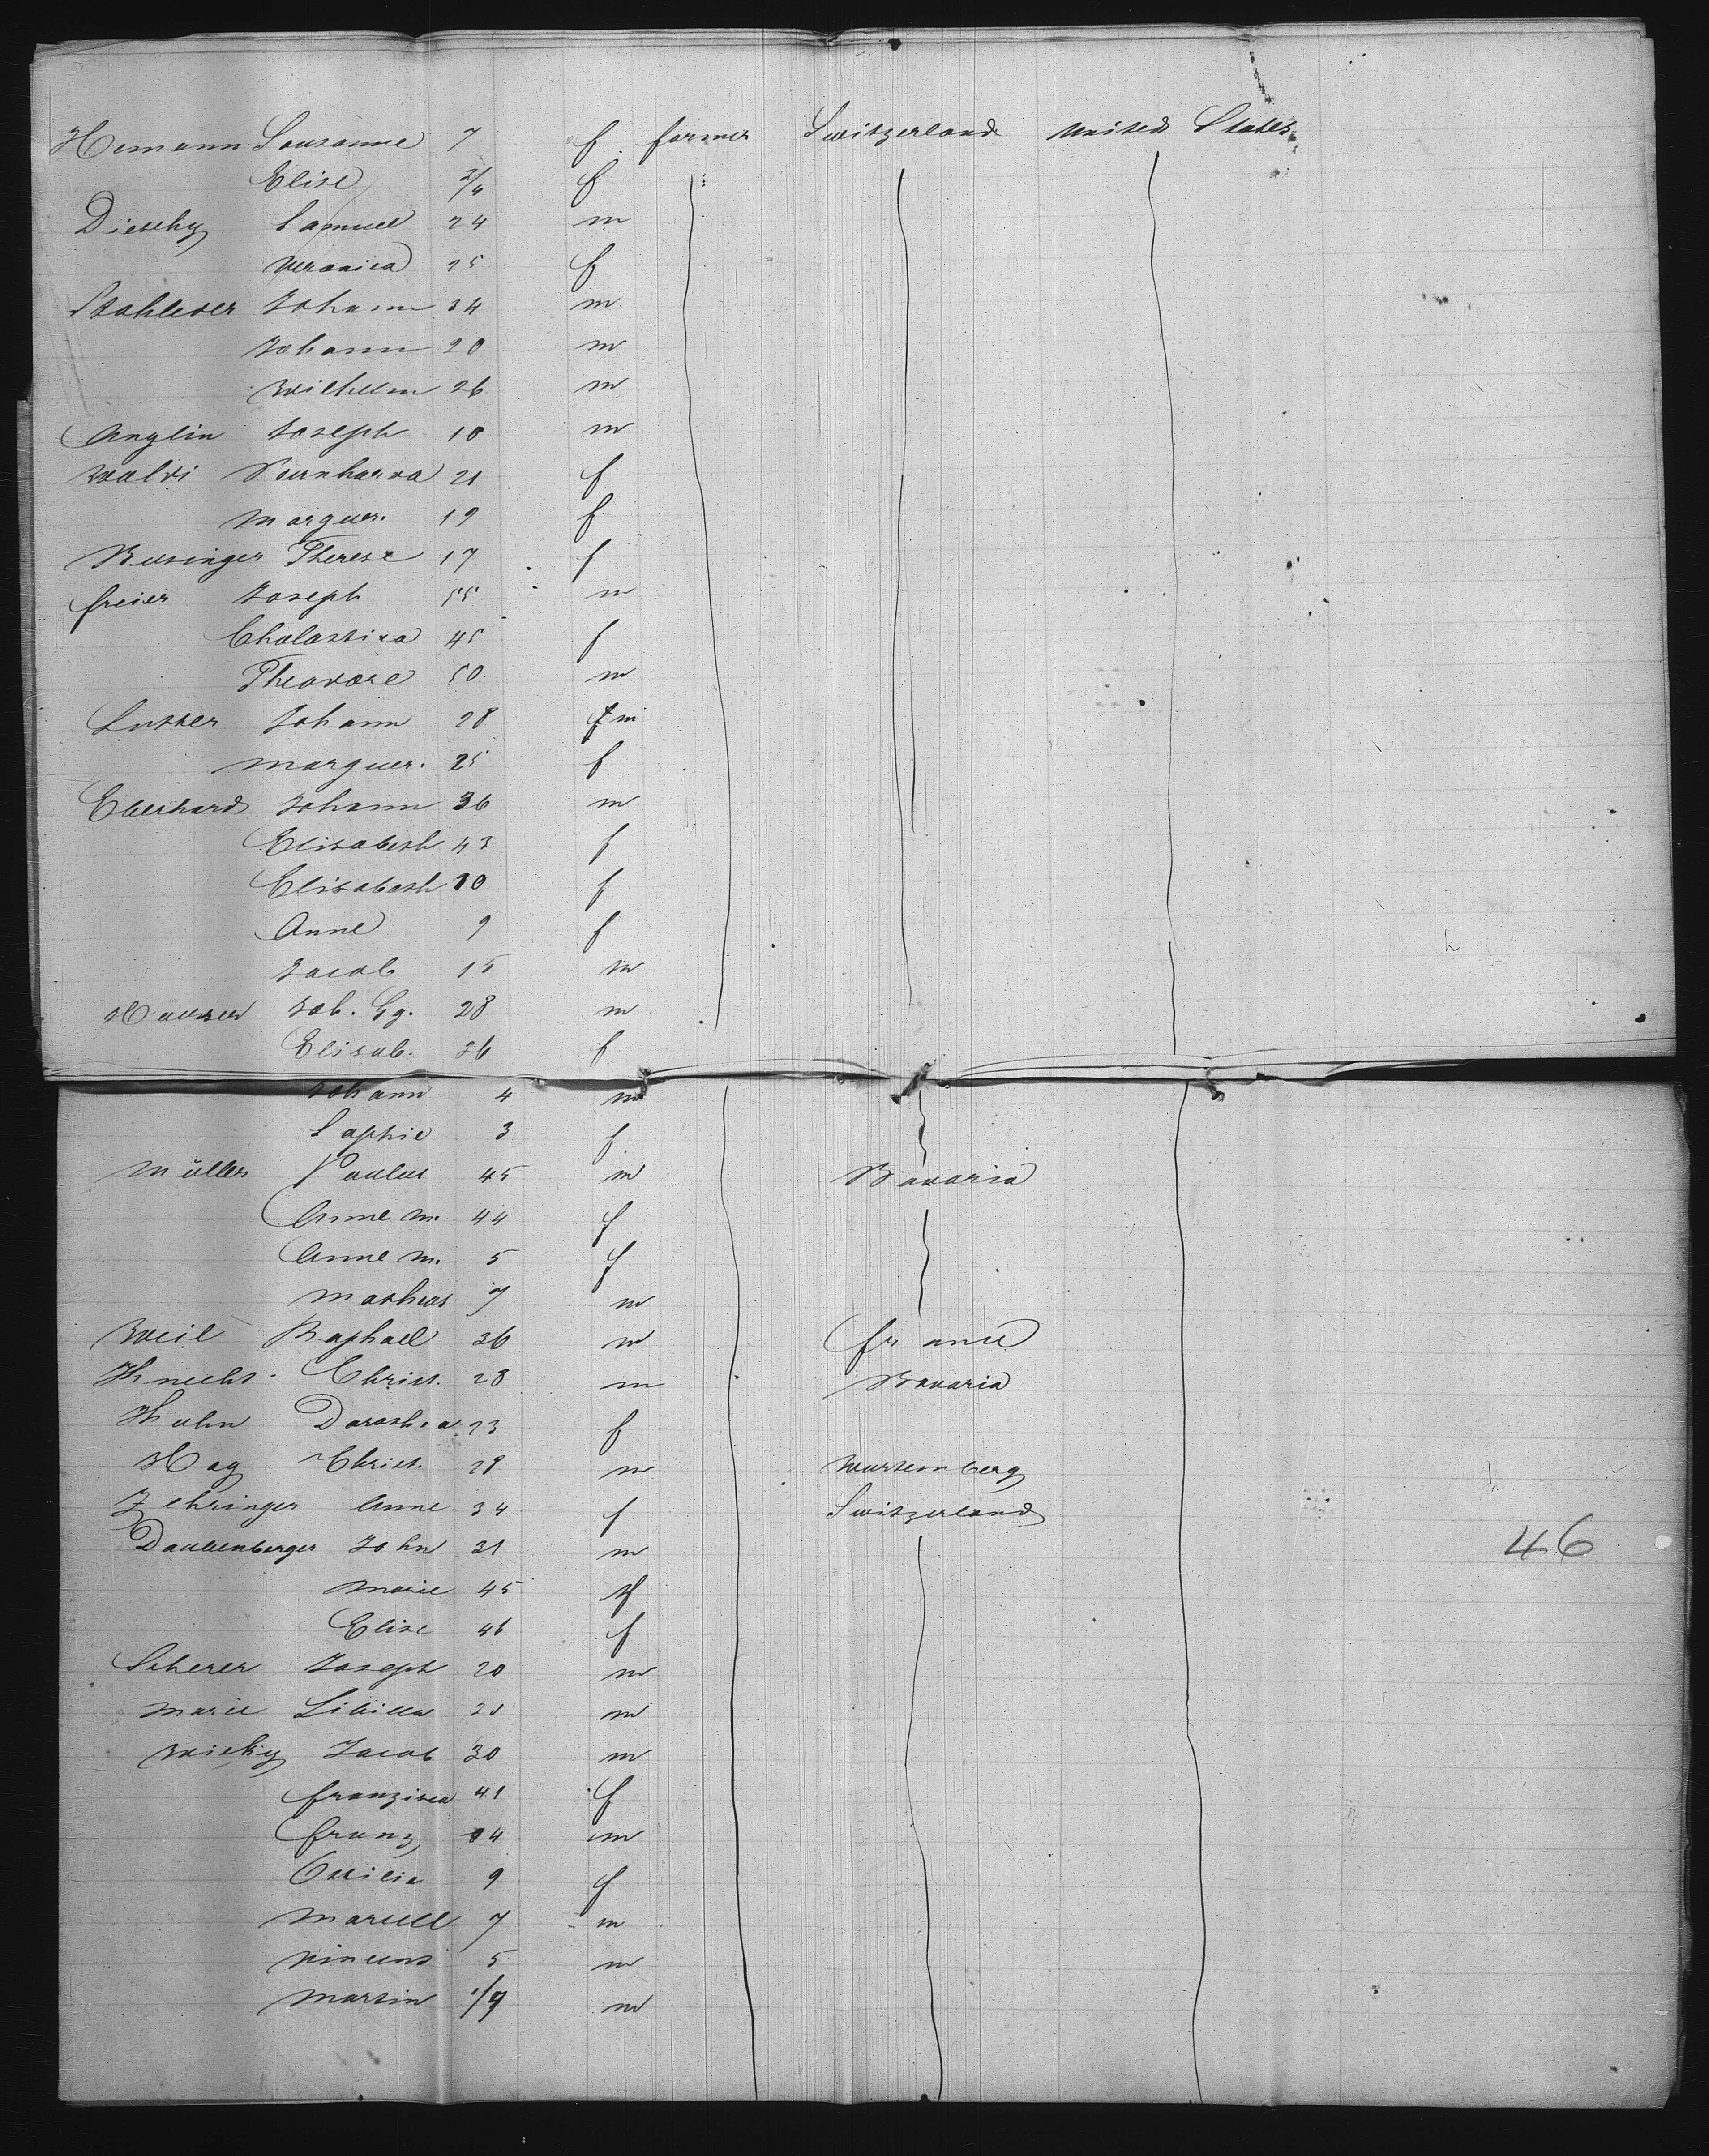 Hemann Sousanne 7 f farmer Switzerland United States
Elise 3/4 f
Dietschy Samuel 24 m
Veronica 25 f
Stahleder Johann 34 m
Johann 20 m
Wilhelm 26 m
Anglin Joseph 18 m
Waldi Bernharda 21 f
Marguer. 19 f
Businger Therese 17 f
Freier Joseph 55 m
Cholastica 45 f
Theodore 50 m
Lutter Johann 28 m
Marguer. 25 f
Eberhard Johann 36 m
Elisabeth 43 f
Elisabeth 10 f
Anne 9 f
Jacob 15 m
Hauser Joh. Gg. 28 m
Elisab. 36 f
Johann 4 m
Sophie 3 f
Müller Paulus 45 m Bavaria
Anne M. 44 f
Anne M. 5 f
Mathias 7 m
Weil Raphael 36 m France
Knecht Christ. 28 m Bavaria
Kuhn Dorothea 23 f
Hag Christ. 28 m Wurtemberg
Zehringer Anne 34 f Switzerland
Daubenberger John 31 m 46
Marie 45 f
Elise 46 f
Scherer Joseph 20 m
Marie Sibilla 20 m
Wicky Jacob 30 m
Franzisca 41 f
Franz 14 m
Ottilia 9 f
Marcell 7 m
Vincens 5 m
Martin 1/4 m